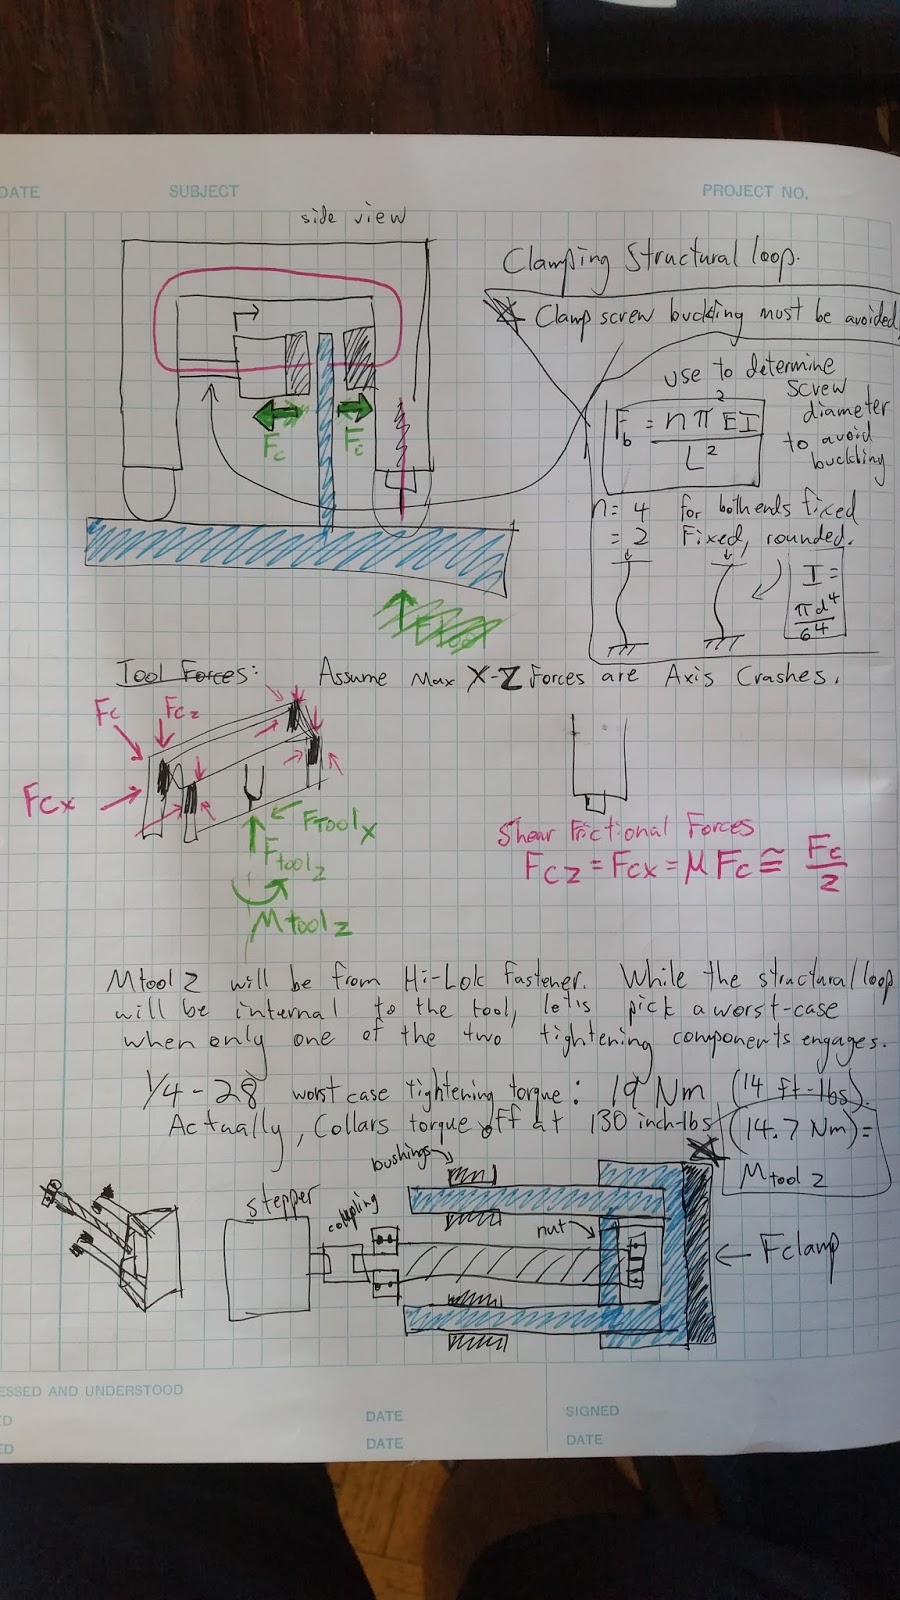 DATE
SUBJECT
PROJECT NO.
side view
Clamping Structural loop.
Clamp screw buckling must be avoided!
use to determine
screw
diameter
to avoid
buckling
F_b = nπ²EI / L²
n = 4 for both ends fixed
= 2 Fixed, rounded.
I =
πd⁴
64
Fc
Fc
Tool Forces: Assume Max X-Z Forces are Axis Crashes.
Fc
Fcz
Fcx
FTOOLx
Ftoolz
Mtoolz
Shear Frictional Forces
Fcz = Fcx = μFc ≅ Fc/2
Mtool z will be from Hi-Lok Fastener. While the structural loop
will be internal to the tool, let's pick a worst-case
when only one of the two tightening components engages.
1/4-28 worst case tightening torque: 19 Nm (14 ft-lbs).
Actually, Collars torque off at 130 inch-lbs (14.7 Nm) =
Mtool z
bushings
stepper
coupling
nut
Fclamp
ESSED AND UNDERSTOOD
ED
DATE
SIGNED
ED
DATE
DATE